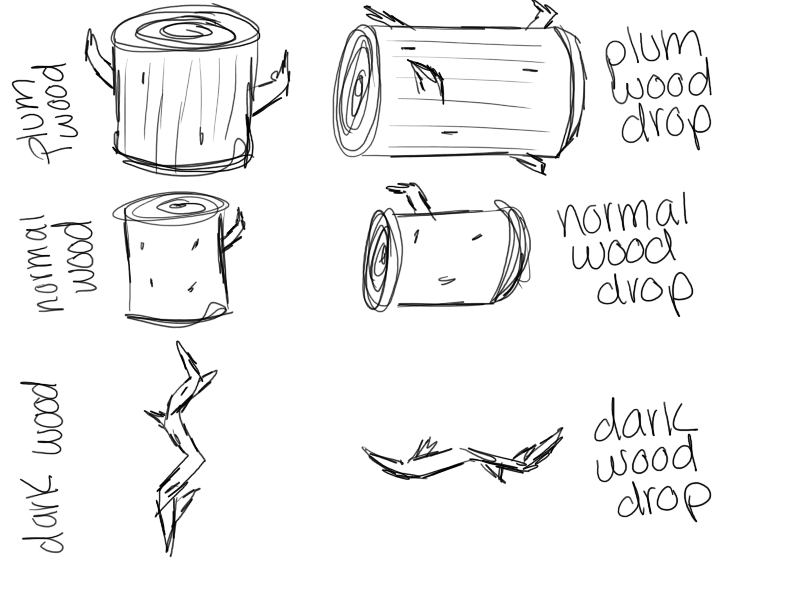 plum
wood
plum
wood
drop
normal
wood
normal
wood
drop
dark wood
dark
wood
drop